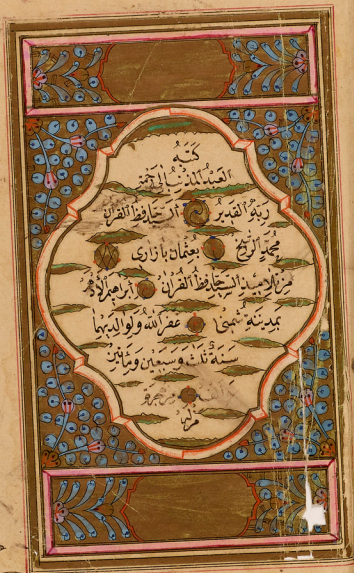 كتبه
العبد المذنب الى رحمة
ربه القدير السيد حافظ القران
محمد الراجح بعثمان بازارى
من تلاميذ السيد حافظ القران ابراهيم الادهم
بمدينة شمنى غفر الله ولوالديهما
سنة ثلث وسبعين ومأتين